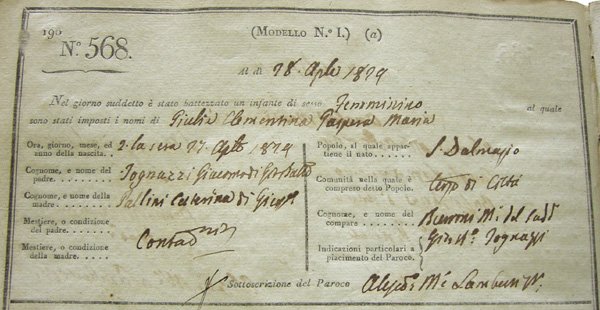 190
N.º 568.
(MODELLO N.º I.) (a)
Al dì 28. Aple 1829
Nel giorno suddetto è stato battezzato un infante di sesso Femminino al quale
sono stati imposti i nomi di Giulia Clementina Gaspera Maria
Ora, giorno, mese, ed
anno della nascita.. 2. la sera 27. Aple 1829
Cognome, e nome del
padre. Tognazzi Giacomo di
Cognome, e nome della
madre. Pallini Caterina di
Mestiere, o condizione
del padre.
Mestiere, o condizione
della madre.
Popolo, al quale appar-
tiene il nato S. Dalmazio
Comunità nella quale è
compreso detto Popolo. di Città
Cognome, e nome del
compare
Tognazzi
Indicazioni particolari a
piacimento del Paroco.
Sottoscrizione del Paroco